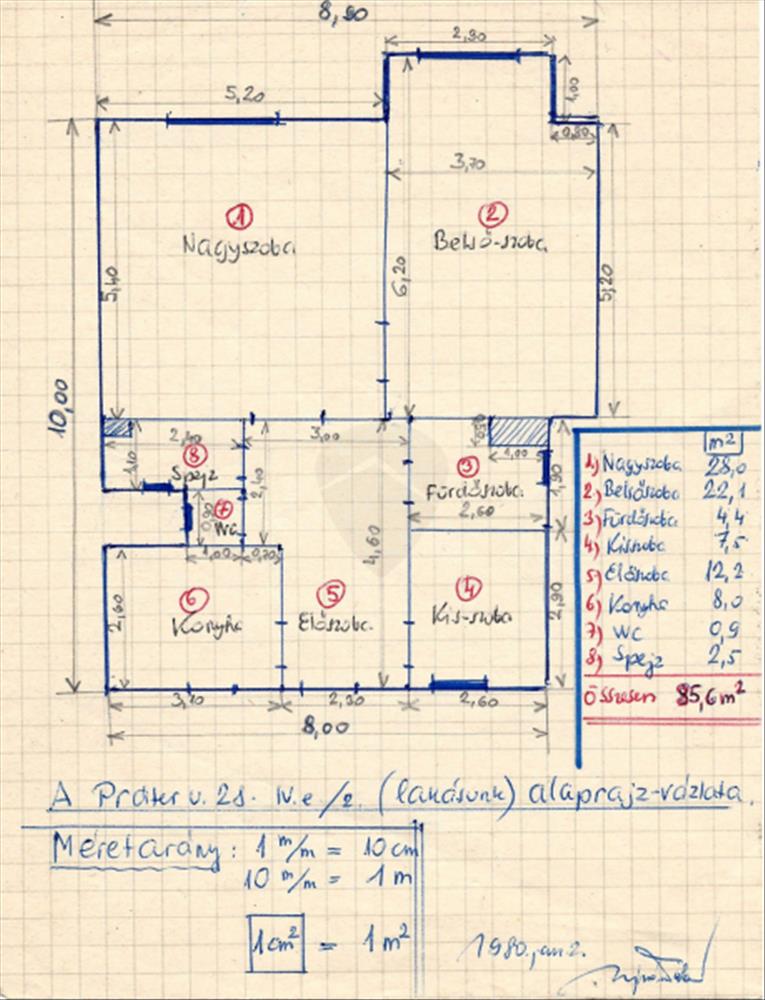 8,90
2,90
5,20
1,00
0,80
3,70
1
Nagyszoba
2
Belső-szoba
5,40
6,20
5,20
10,00
2,40
3,00
1,00
8
Spejz
1,10
2,40
3
Fürdőszoba
1,90
2,60
7
WC
0,90
1,00
0,70
4,60
6
Konyha
5
Előszoba
4
Kis-szoba
2,60
2,90
3,20
2,30
2,60
8,00
m²
1) Nagyszoba 28,0
2) Belsőszoba 22,1
3) Fürdőszoba 4,4
4) Kisszoba 7,5
5) Előszoba 12,2
6) Konyha 8,0
7) WC 0,9
8) Spejz 2,5
Összesen 85,6 m²
A Práter u. 28. IV.e/2. (lakásunk) alaprajz-vázlata.
Méretarány: 1 m/m = 10 cm
10 m/m = 1 m
1 cm² = 1 m²
1980. jan 2.